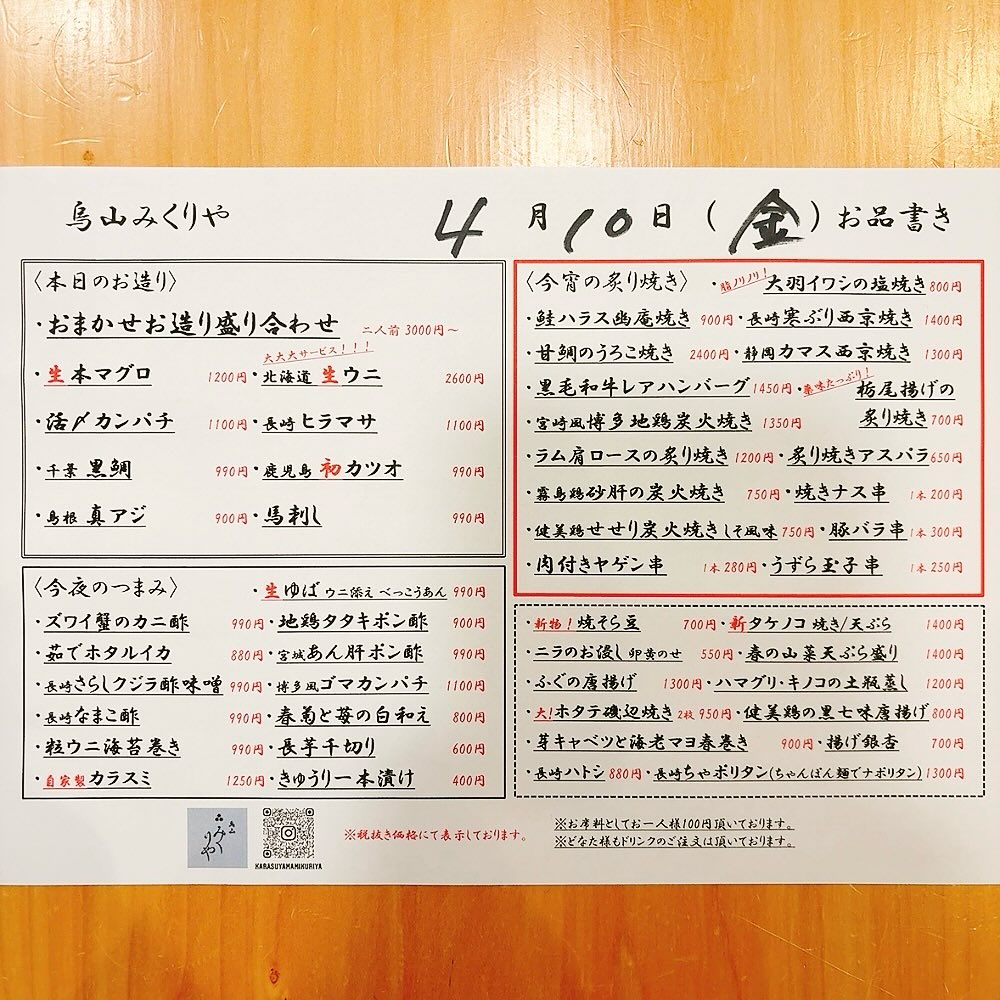 烏山みくりや 4月10日(金)お品書き
〈本日のお造り〉
・おまかせお造り盛り合わせ 二人前 3000円～
大大大サービス!!!
・生本マグロ 1200円・北海道 生ウニ 2600円
・活〆カンパチ 1100円・長崎 ヒラマサ 1100円
・千葉 黒鯛 990円・鹿児島 初カツオ 990円
・島根 真アジ 900円・馬刺し 990円
〈今夜のつまみ〉 ・生ゆば ウニ添え べっこうあん 990円
・ズワイ蟹のカニ酢 990円・地鶏タタキポン酢 900円
・茹でホタルイカ 880円・宮城あん肝ポン酢 990円
・長崎さらしクジラ酢味噌 990円・博多風ゴマカンパチ 1100円
・長崎なまこ酢 990円・春菊と苺の白和え 800円
・粒ウニ海苔巻き 990円・長芋千切り 600円
・自家製カラスミ 1250円・きゅうり一本漬け 400円
〈今宵の炙り焼き〉 ・脂ノリノリ!大羽イワシの塩焼き 800円
・鮭ハラス幽庵焼き 900円・長崎寒ぶり西京焼き 1400円
・甘鯛のうろこ焼き 2400円・静岡カマス西京焼き 1300円
・黒毛和牛レアハンバーグ 1450円・薬味たっぷり!栃尾揚げの
炙り焼き 700円
・宮崎風博多地鶏炭火焼き 1350円
・ラム肩ロースの炙り焼き 1200円・炙り焼きアスパラ 650円
・霧島鶏砂肝の炭火焼き 750円・焼きナス串 1本 200円
・健美鶏せせり炭火焼きしそ風味 750円・豚バラ串 1本 300円
・肉付きヤゲン串 1本 280円・うずら玉子串 1本 250円
・新物!焼そら豆 700円・新タケノコ 焼き/天ぷら 1400円
・ニラのお浸し 卵黄のせ 550円・春の山菜天ぷら盛り 1400円
・ふぐの唐揚げ 1300円・ハマグリ・キノコの土瓶蒸し 1200円
・大!ホタテ磯辺焼き 2枚 950円・健美鶏の黒七味唐揚げ 800円
・芽キャベツと海老マヨ春巻き 900円・揚げ銀杏 700円
・長崎ハトシ 880円・長崎ちゃポリタン(ちゃんぽん麺でナポリタン) 1300円
烏山みくりや
KARASUYAMAMIKURIYA
※税抜き価格にて表示しております。
※お席料としてお一人様100円頂いております。
※どなた様もドリンクのご注文は頂いております。